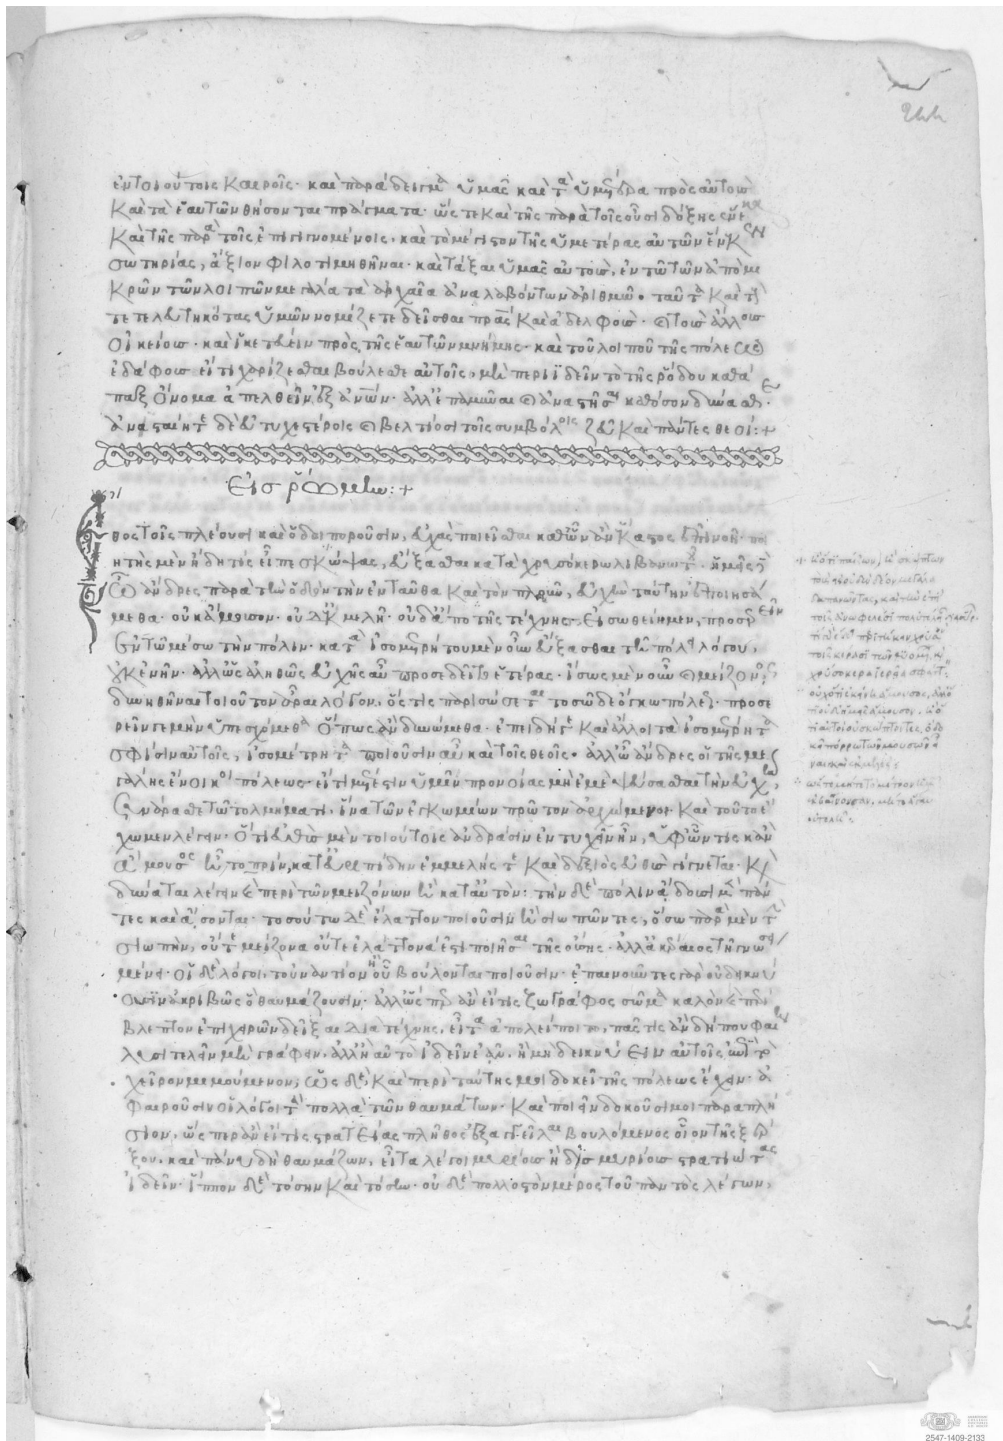 ἐν τοιούτοις καιροῖς· καὶ παράδειγμα ὑμᾶς καὶ τὰ ὑμέτερα πρὸς αὐτοὺς
καὶ τὰ ἑαυτῶν θήσονται πράγματα· ὥστε καὶ τῆς παρὰ τοῖς οὖσι δόξης ἕνεκα
καὶ τῆς παρὰ τοῖς ἐπιγιγνομένοις· καὶ τὸ μέγιστον τῆς ὑμετέρας αὐτῶν ἕνεκεν
σωτηρίας, ἄξιον φιλοτιμηθῆναι· καὶ τάξαι ὑμᾶς αὐτοὺς, ἐν τῷ τῶν ἀπὸ μι
κρῶν τῶν λοιπῶν μεγάλα τὰ ἀρχαῖα ἀναλαβόντων ἀριθμῷ· ταῦτα καὶ τοὺς
τετελευτηκότας ὑμῶν νομίζετε δεῖσθαι πατέρας καὶ ἀδελφοὺς· καὶ τοὺς ἄλλους
οἰκείους· καὶ ἱκετεύειν πρὸς τῆς ἑαυτῶν μνήμης· καὶ τοῦ λοιποῦ τῆς πόλεως
ἐδάφους εἴ τι χαρίζεσθαι βούλεσθε αὐτοῖς, μὴ περιϊδεῖν τὸ τῆς ῥόδου καθά
παξ ὄνομα ἀπελθεῖν ἐξ ἀνθρώπων· ἀλλ' ἐπαμῦναι καὶ ἀναστῆσαι καθόσον δύνασθε·
ἀνασταίητε δὲ εὐτυχεστέροις καὶ βελτίοσι τοῖς συμβόλοις ζεῦ καὶ πάντες θεοί:+
Εἰς ῥώμην:+
Ἔθος τοῖς πλέουσι καὶ ὁδοιποροῦσιν, εὐχὰς ποιεῖσθαι καθ' ὧν ἂν ἕκαστος ἐπινοῇ· ποι
ητὴς μὲν ἤδη τίς εἶπε σκώψας, εὔξασθαι κατὰ χρυσόκερω λιβανωτοῦ· ἡμεῖς δὲ
ὦ ἄνδρες παρὰ τὴν ὁδὸν τὴν ἐνταῦθα καὶ τὸν πλοῦν, εὐχὴν ταύτην ἐποιησά
μεθα· οὐκ ἄμουσον· οὐδ' ἐκμελῆ· οὐδ' ἄπο τῆς τέχνης· εἰ σωθείημεν, προσερεῖν
ἐν τῷ μέσῳ τὴν πόλιν· κατὰ ἰσομέτρητου μὲν οὖν εὔξασθαι τῇ πόλει λόγου,
οὐκ ἐνῆν· ἀλλ' ὡς ἀληθῶς εὐχῆς αὖ προσεδεῖτο ἑτέρας· ἴσως μὲν οὖν καὶ μείζονος
δυνηθῆναι τοιοῦτον ἆραι λόγον, ὅστις παρισώσεται τοσῷδε ὄγκῳ πόλεως· προσε
ρεῖν γε μὴν ὑπεσχόμεθα ὅπως ἂν δυνώμεθα· ἐπειδήγε καὶ ἄλλοι τὰ ἰσομέτρητα
σφίσιν αὐτοῖς, ἰσομέτρητα ποιοῦσιν αὖ καὶ τοῖς θεοῖς· ἀλλ' ὦ ἄνδρες οἱ τῆς με
γάλης ἔνοικοι πόλεως· εἴ τι μέτεστιν ὑμῖν προνοίας μὴ ἐμὲ ψεύσασθαι τὴν εὐχὴν,
συνάρασθε τῷ τολμήματι, ἵνα τῶν ἐγκωμίων πρῶτον ἀρχόμενοι καὶ τοῦτο ἔ
χωμεν λέγειν· ὅτι εὐθὺς μὲν τοιούτοις ἀνδράσιν ἐντυχεῖν ἦν, ὑφ' ὧν τὶς κἂν
ἄμουσος ᾖ τὸ πρὶν, κατ' εὐριπίδην ἐμμελής τε καὶ δεξιὸς εὐθὺς γίγνεται· καὶ
δύναται λέγειν καὶ περὶ τῶν μειζόνων ἢ κατ' αὐτὸν· τὴν δὲ πόλιν ᾄδουσι μὲν πάν
τες καὶ ᾄσονται· τοσούτῳ δὲ ἔλαττον ποιοῦσιν ἢ σιωπῶντες, ὅσῳ παρὰ μὲν τὴν
σιωπὴν, οὔτε μείζονα οὔτε ἐλάττονα ἔστι ποιῆσαι τῆς οὔσης· ἀλλ' ἀκέραιος τῇ γνώσει
μένει· οἱ δὲ λόγοι, τοὐναντίον ἢ οὗ βούλονται ποιοῦσιν· ἐπαινοῦντες γὰρ οὐ δεικνύ
ουσιν ἀκριβῶς ὃ θαυμάζουσιν· ἀλλ' ὥσπερ ἂν εἴ τις ζωγράφος σῶμα καλὸν καὶ περί
βλεπτον ἐπιχειρῶν δεῖξαι διὰ τέχνης, εἶτα ἀπολείποιτο, πᾶς τὶς ἂν δήπου φαίη
λυσιτελεῖν μὴ γράφειν· ἀλλ' ἢ αὐτὸ ἰδεῖν ἐᾶν, ἢ μὴ δεικνύειν αὐτοῖς ἐπὶ τὸ
χεῖρον μιμούμενον, ὣς δὲ καὶ περὶ ταύτης μοι δοκεῖ τῆς πόλεως ἔχειν· ἀ
φαιροῦσιν οἱ λόγοι τὰ πολλὰ τῶν θαυμάτων· καὶ ποιεῖν δοκοῦσί μοι παραπλή
σιον, ὥσπερ ἂν εἴ τις στρατείας πλῆθος ἐξαγγεῖλαι βουλόμενος οἷον τῆς ξέρ
ξου· καὶ πάνυ δὴ θαυμάζων, εἶτα λέγοι μυρίους ἢ δὶς μυρίους στρατιώτας
ἰδεῖν· ἵππον δὲ τόσην καὶ τόσην· οὐ δὲ πολλοστὸν μέρος τοῦ παντὸς λέγων,
2547-1409-2133